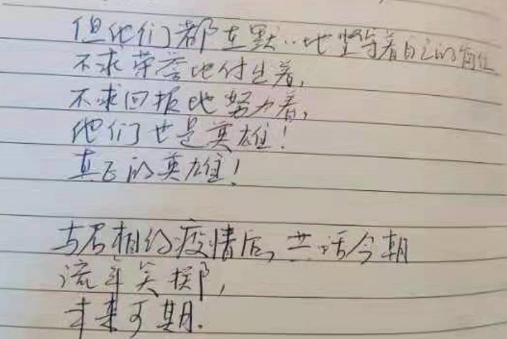 但他们都在默··地坚守着自己的岗位
不求荣誉地付出着,
不求回报地努力着,
他们也是英雄!
真正的英雄!
与君相约疫情后,共话今朝
流年笑掷,
未来可期.